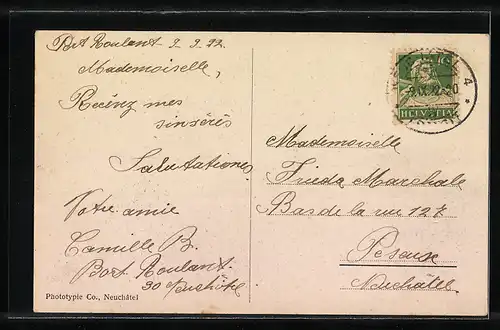 Port Roulant 9.9.22.
Mademoiselle,
Recénz mes
sinsérés
Salutationes
Votre amie
Camille B.
Port Roulant
30 Neuchâtel
Phototypie Co., Neuchâtel
HELVETIA
4
Mademoiselle
Frieda Marchale
Bas de la rue 127
Peseux
Neuchâtel